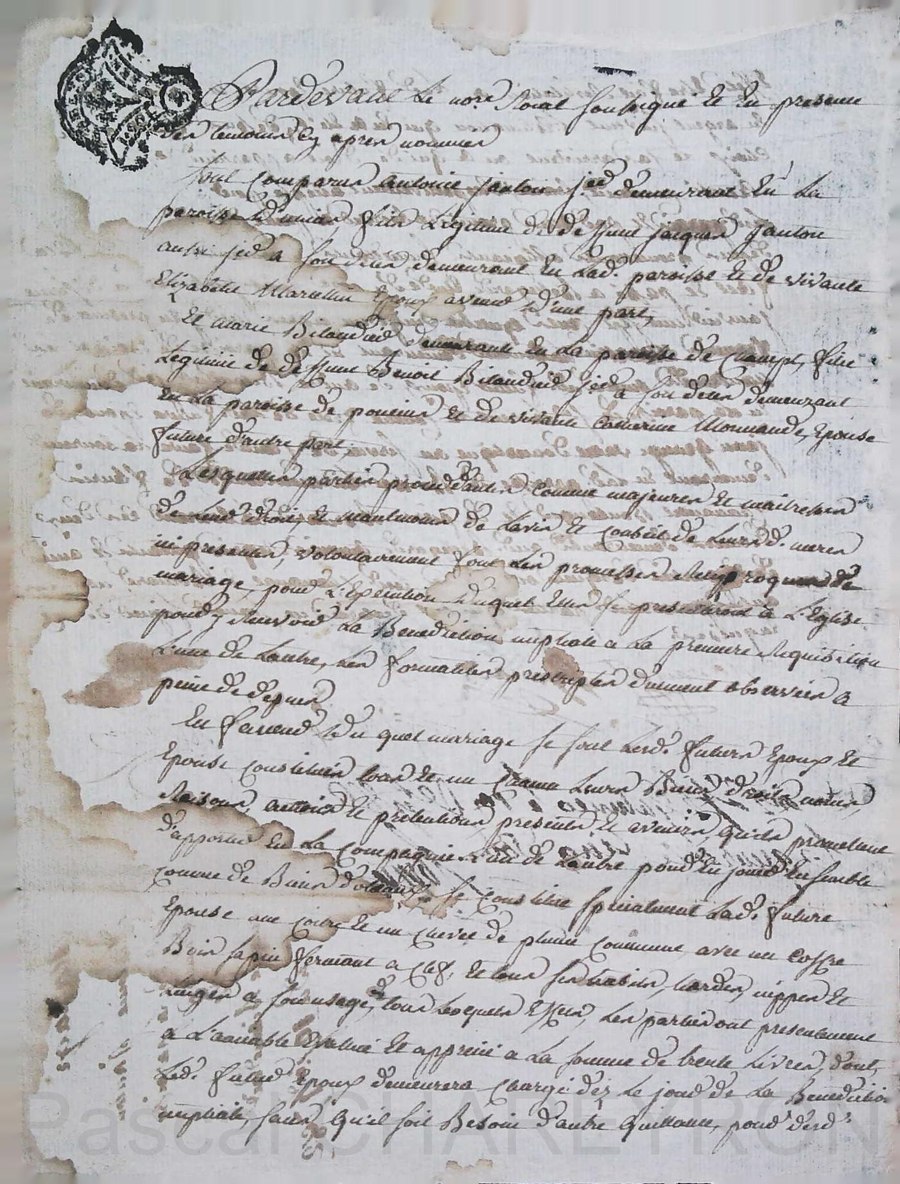 Pardevant Le nore Roial soussigné et en presence
des temoins cy apres nommés
sont comparus antoine janton jer demeurant en la
paroisse fils Legitime de deffunt jacques janton
aussi jer a son deces demeurant en Lad. paroisse et de vivante
Elizabeth Epoux avenir d'une part,
Et marie demeurant en La paroisse de fille
Legitime de deffunt Benoit jer a son deces demeurant
en La paroisse de et de vivante Catherine Epouse
future d'autre part,
Lesquelles parties procedantes comme majeures et maitresses
de Leurs droits, et neantmoins de Lavis et Conseil de Leursd. meres
ici presentes, volontairement font Les promesses reciproques de
mariage, pour L'Execution duquel Elles se presenteront a L'Eglise
pour y recevoir La Benediction nuptiale a La premiere requisition
L'une de Lautre, Les formalités prescriptes duement observées a
peine de depens.
En faveur du quel mariage se sont Lesd. futurs Epoux et
Epouse constitués tous et un chacun Leurs Biens droits noms,
raisons, actions et pretentions presents et avenirs, quils promettent
d'apporter En La Compagnie L'un de Lautre pour En jouir Ensemble
comme de Biens dotaux, se constitue specialement Lad. future
Epouse une et un de plume commune, avec un coffre
Bois sapin fermant a clef, et tous ses habits, hardes, nippes et
Linges a son usage, tous Lesquels Effets, Les parties ont presentement
a L'amiable Evalué et apprecié a La somme de trente Livres, dont
Led. futur Epoux demeurera chargé dez Le jour de La Benediction
nuptiale, sans qu'il soit Besoin d'autre quittance, pour
Pascal CHAREYRON